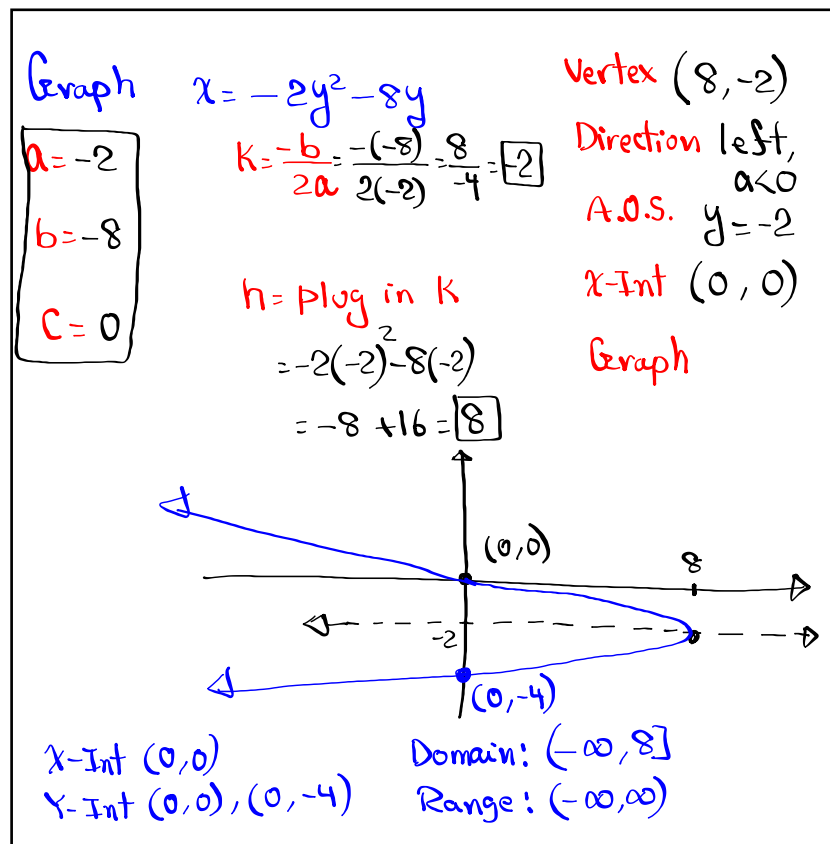 Graph x = -2y² - 8y
a = -2
b = -8
c = 0
K = -b/2a = -(-8)/2(-2) = 8/-4 = -2
h = plug in K
= -2(-2)² - 8(-2)
= -8 + 16 = 8
Vertex (8, -2)
Direction left,
a<0
A.O.S. y = -2
x-Int (0, 0)
Graph
(0,0)
8
-2
(0,-4)
X-Int (0,0)
Y-Int (0,0), (0,-4)
Domain: (-∞, 8]
Range: (-∞,∞)